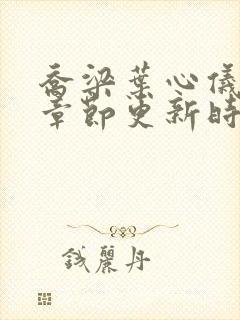 乔梁葉心儀
章節更新時
钱麗丹